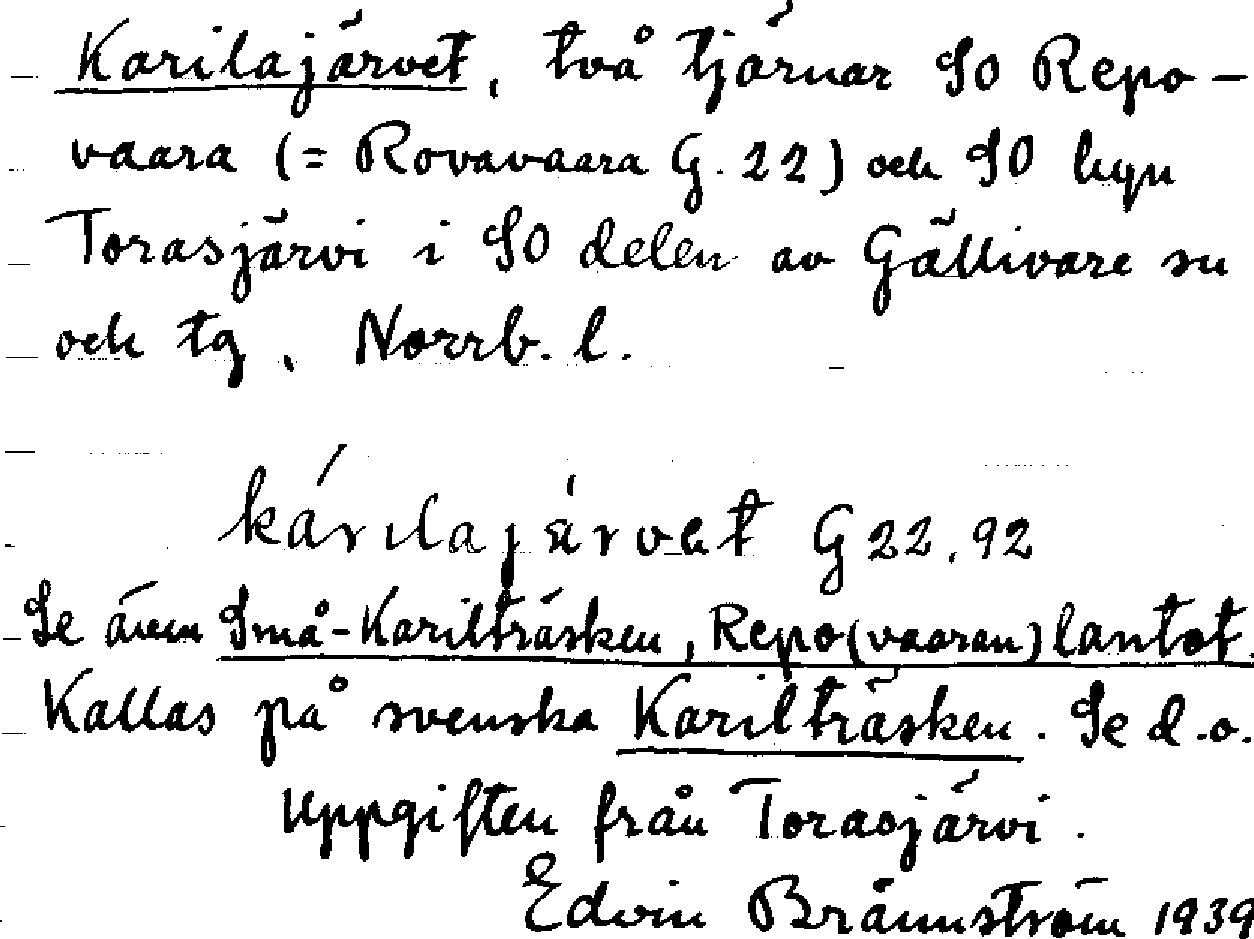 Karilajärvet, två tjärnar SO Repo-
vaara (= Rovavaara G. 22) och SO byn
Torasjärvi i SO delen av Gällivare sn
och tg, Norrb. l.
kárilajärvet G 22, 92
Se även Små-Kariltträsken, Repo(vaaran)lantot.
Kallas på svenska Kariltträsken. Se d.o.
Uppgiften från Torasjärvi.
Edvin Brännström 1939